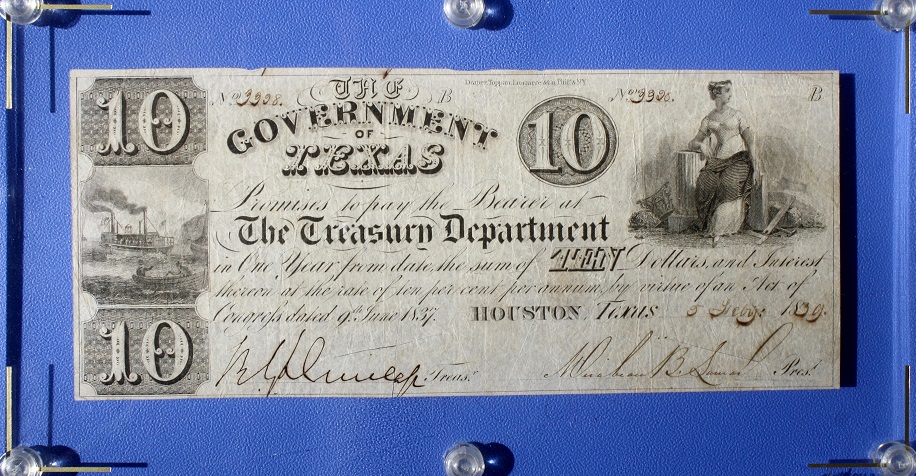 10
No 3338.
THE
B
Draper, Toppan, Longacre & Co. Phila. & N.Y.
No 3338.
B
GOVERNMENT
OF
TEXAS
10
Promises to pay the Bearer at
The Treasury Department
in One Year from date, the sum of TEN Dollars, and Interest
thereon at the rate of ten per cent per annum, by virtue of an Act of
Congress dated 9th June 1837. HOUSTON, Texas 5 Feby. 1839.
10
Treasr. Mirabeau B. Lamar Prest.